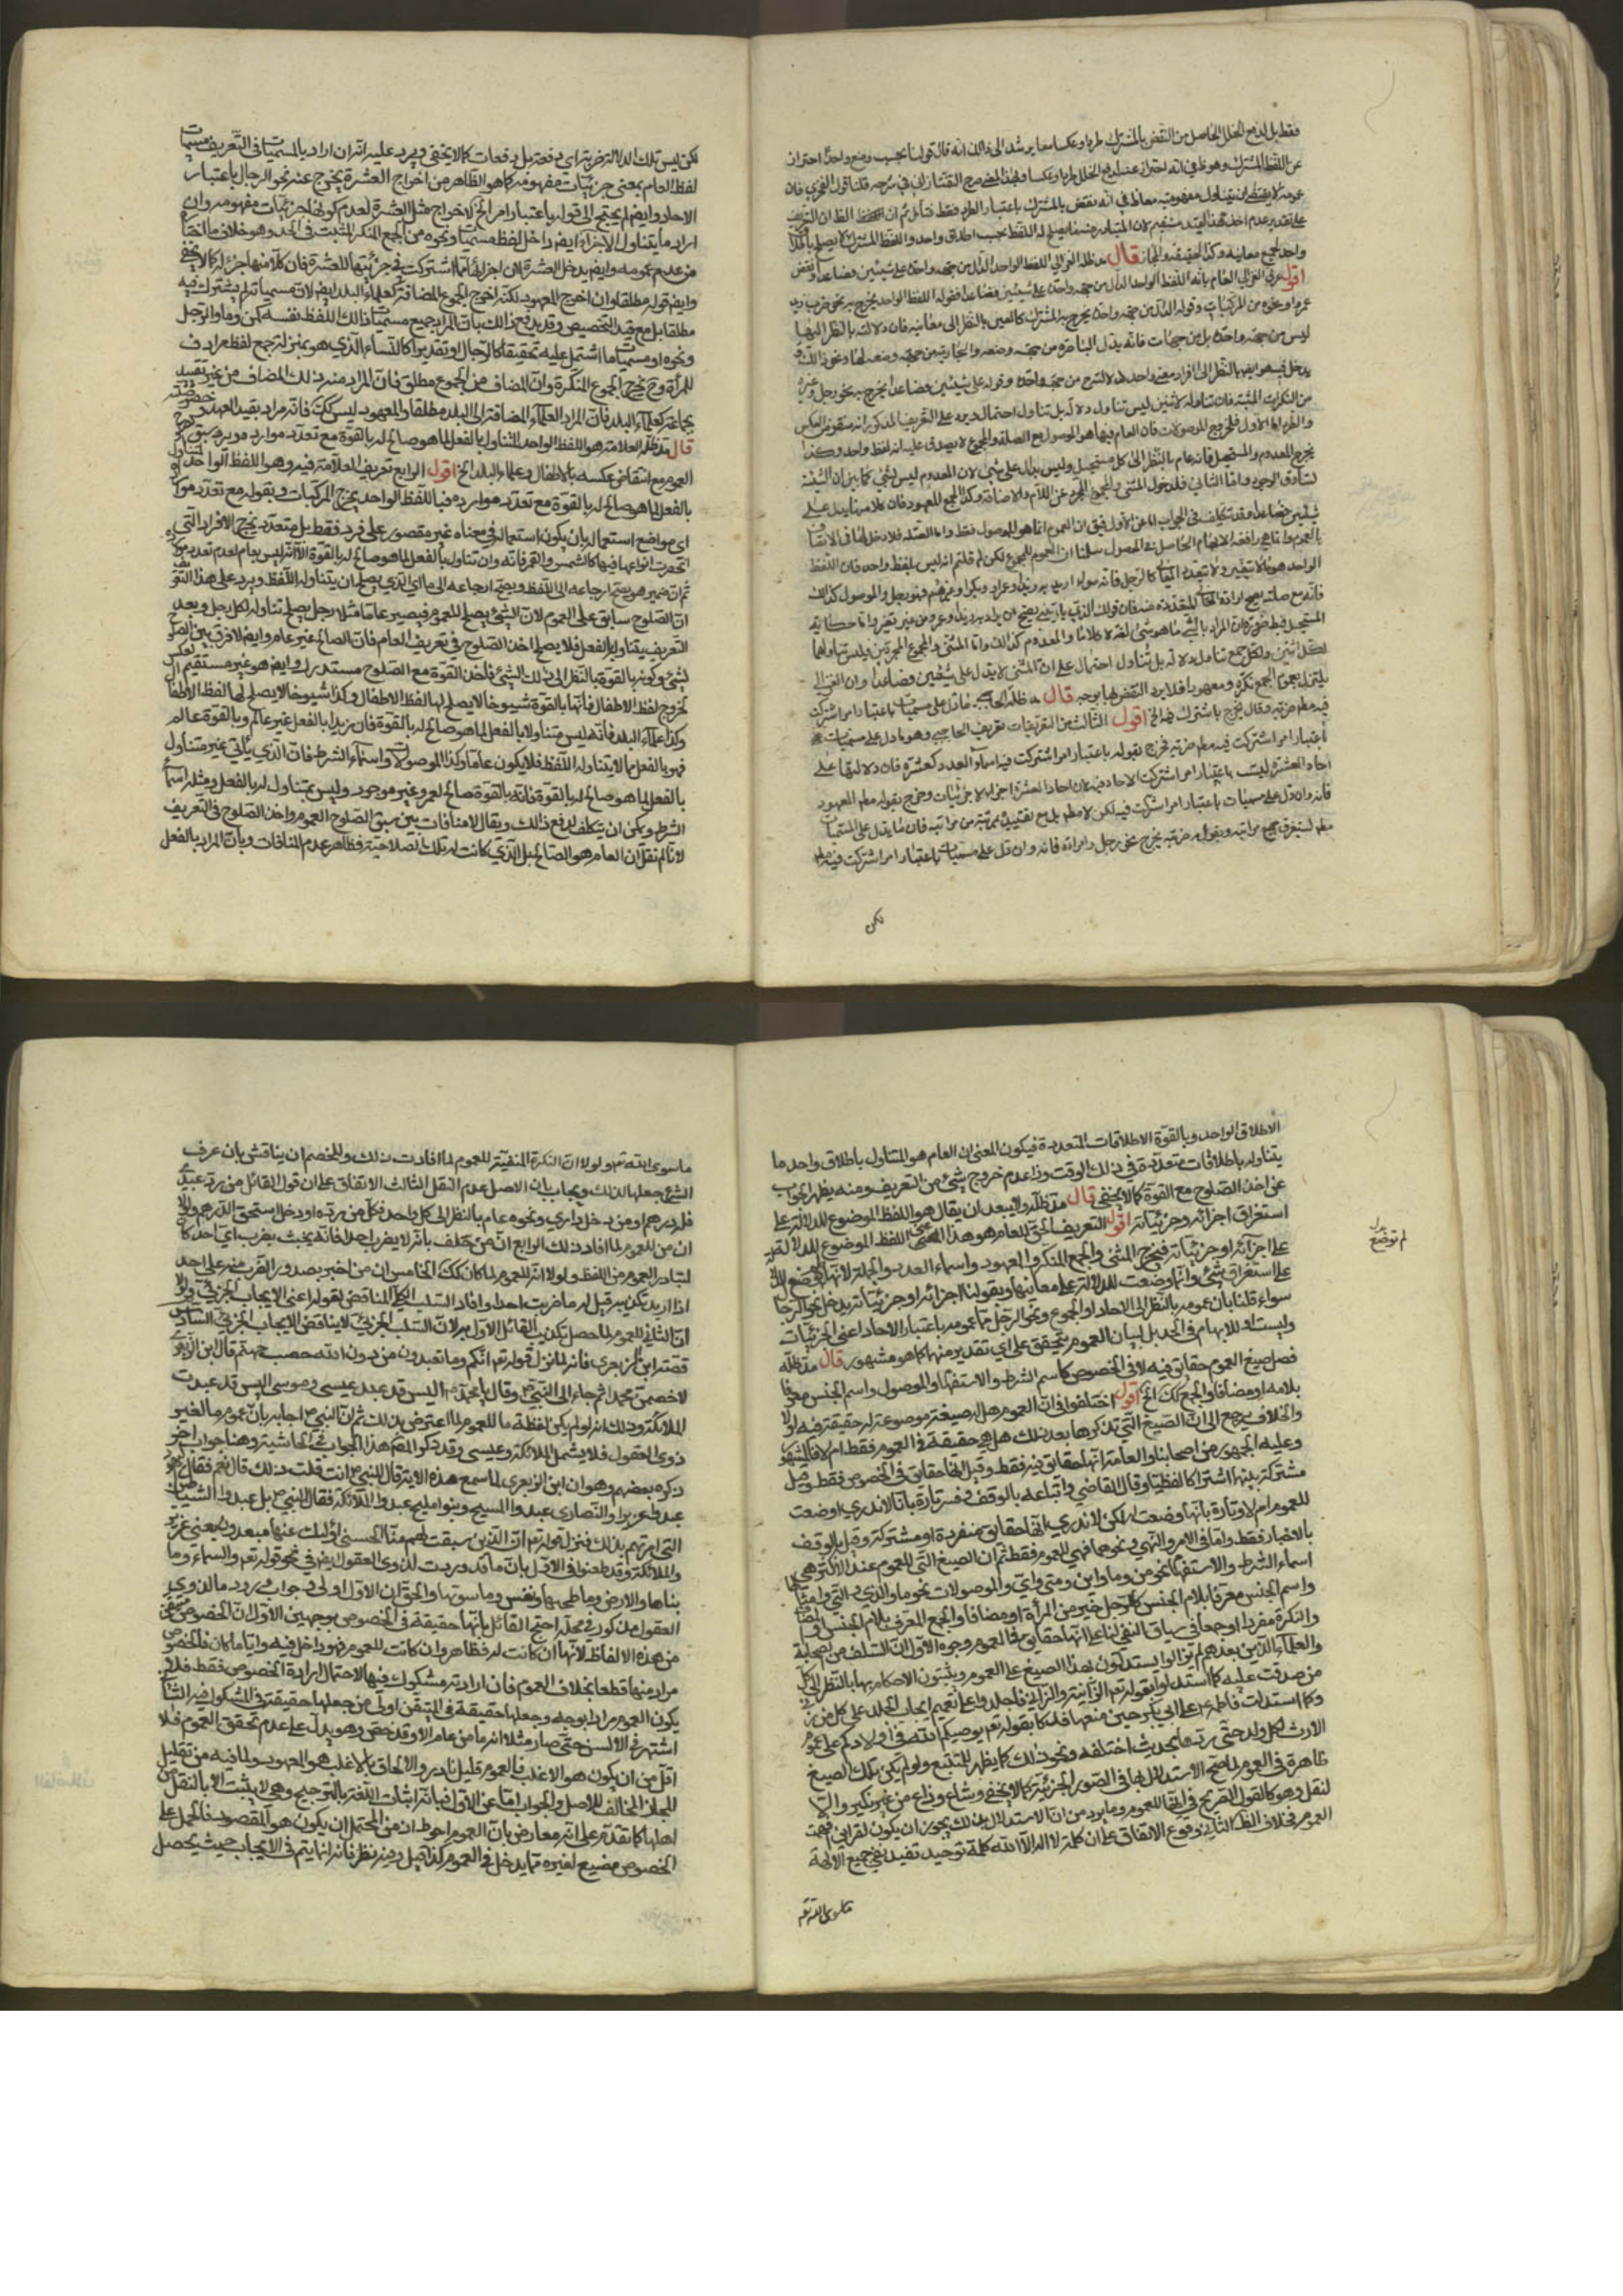 فقط بل لدفع الخلل الحاصل من النقض بالمشترك طردا وعكسا معا يرشد الى ذلك انه قال قولنا بحسب وضع واحد احتراز
عن اللفظ المشترك وهو ظ في انه احتراز عنه لدفع الخلل طردا وعكسا وبهذا المعنى صرح التفتازاني في شرحه قلنا قول الفخري فان
عمومه لا يقتضي ان يتناول مفهوميه معا ظ في انه نقض بالمشترك باعتبار الطرد فقط فتأمل ثم ان الظ ان التعريف
على تقدير عدم اخذ هذا القيد مستقيم لان المتبادر منه ما يصلح له اللفظ بحسب اطلاق واحد واللفظ المشترك لا يصلح باطلاق
واحد لجميع معانيه وكذا الحقيقة والمجاز قال مد ظله الغزالي اللفظ الواحد الدال من جهة واحدة على شيئين فصاعدا ونقض
اقول عرف الغزالي العام بانه اللفظ الواحد الدال من جهة واحدة على شيئين فصاعدا فقوله اللفظ الواحد يخرج به نحو ضرب زيد
عمروا ونحوه من المركبات وقوله الدال من جهة واحدة يخرج به المشترك كالعين بالنظر الى معانيه فان دلالته بالنظر اليها
ليس من جهة واحدة بل من جهات فانه يدل الباصرة من جهة وضعه والجارية من جهة وضعه لها ونحو ذلك و
يدخل فيه هو ايضا بالنظر الى افراد معنى واحد من جهة واحدة وقوله على شيئين فصاعدا يخرج به نحو رجل وغيره
من النكرات المثبتة فان تناوله لاثنين ليس تناول دلالة بل تناول احتمال ويرد على التعريف المذكور انه منقوض العكس
والطرد اما الاول فلخروج الموصولات فان العام فيها هو الموصول مع الصلة والمجموع لا يصدق عليه انه لفظ واحد وكذا
يخرج المعدوم والمستحيل فانه عام بالنظر الى كل مستحيل وليس يدل على شيئ لان المعدوم ليس لشيئ كما بين ان الشيئية
تساوق الوجود واما الثاني فلدخول المثنى والمجموع المجرد عن اللام والاضافة وكذا الجمع المعهود فان كلا منها يدل على
شيئين فصاعدا وقد تكلف في الجواب اما عن الاول فبان العموم انما هو للموصول فقط واما الصلة فلا دخل لها في الاتصاف
بالعموم وانما هي رافعة الابهام الحاصل في الموصول سلمنا ان العموم للمجموع لكن لم قلتم انه ليس بلفظ واحد فان اللفظ
الواحد هو ما لا يتغير ولا يتعدد المعاني كالرجل فانه سواء اريد به زيد وعمرو وبكر او غيرهم فهو رجل والموصول كذلك
فانه مع صلته يصح ارادة المتعددة منه فان قولك الذي ياتيني يصح ان يراد به زيد او عمرو من غير تغير واما حكاية
المستحيل فبط ضرورة ان المراد بالشيئ ما هو شيئ لغة لا كلاما والمعدوم كذلك واما المثنى والمجموع المجردين فليس تناولهما
لكل اثنين ولكل جمع تناول دلالة بل تناول احتمال على ان المثنى لا يدل على شيئين فصاعدا وان الغزالي
يلتزم بعموم الجمع نكرة ومعهودا فلا يرد النقض بها بوجه قال مد ظله الحاجبي ما دل على مسميات باعتبار امر اشتركت
فيه مطلقا ضربة وقال يخرج باشتركت فيه الخ اقول الثالث من التعريفات تعريف الحاجبي وهو ما دل على مسميات
باعتبار امر اشتركت فيه مطلقا ضربة فخرج بقوله باعتبار امر اشتركت فيه اسماء العدد كعشرة فان دلالتها على
احاد العشرة ليست باعتبار امر اشتركت الاحاد فيه لان احاد العشرة اجزائها لا جزئيات وخرج بقوله مطلقا المعهود
فانه وان دل على مسميات باعتبار امر اشتركت فيه لكن لا مطلقا بل مع تقييد بمرتبة من مراتبه فان ما يدل على المسميات
مطلقا يستغرق جميع مراتبه وبقوله ضربة يخرج نحو رجل وامراة فانه وان دل على مسميات باعتبار امر اشتركت فيه مطلقا
لكن
لكن ليس تلك الدلالة ضربة اي دفعة بل دفعات كما لا يخفى ويرد عليه انه ان اراد بالمسميات في التعريف مسميات
لفظ العام بمعنى جزئيات مفهومه كما هو الظاهر من اخراج العشرة يخرج عنه نحو الرجال باعتبار
الاحاد وايضا لم يحتج الى قوله باعتبار امر الخ لاخراج مثل العشرة لعدم كونها جزئيات مفهومه وان
اراد ما يتناول الاجزاء ايضا دخل لفظ مسميات ونحوه من الجمع المنكر المثبت في الحد وهو خلاف
من عدم عمومه وايضا يدخل العشرة لان اجزائها اشتركت في جزئيتها للعشرة فان كلا منها جزء لها كما لا يخفى
وايضا قوله مطلقا وان اخرج المعهود لكنه اخرج الجموع المضافة كعلماء البلد ايضا لان مسمياته لم يشترك فيه
مطلقا بل مع قيد التخصيص وقد يدفع ذلك بان المراد جميع مسميات ذلك اللفظ نفسه كمن وما والرجل
ونحوه او مسميات ما اشتمل عليه تحقيقا كالرجال او تقديرا كالنساء الذي هو بمنزلة جمع لفظ مرادف
للمرأة وح يخرج الجموع المنكرة وان المضاف من الجموع مطلق فان المراد منه ذلك المضاف من غير تقييد
بجماعة كعلماء البلد فان المراد العلماء المضافة الى البلد مطلقا والمعهود ليس كك فانه مراد بقيد العهد
قال مد ظله العلامة هو اللفظ الواحد المتناول بالفعل لما هو صالح له بالقوة مع تعدد موارده ويرد سبق
العموم مع انتقاض عكسه بالاطفال وعلماء البلد الخ اقول الرابع تعريف العلامة فيه وهو اللفظ الواحد المتناول
بالفعل لما هو صالح له بالقوة مع تعدد موارده فباللفظ الواحد يخرج المركبات وبقوله مع تعدد موارده
اي مواضع استعماله بان يكون استعماله في معناه غير مقصور على فرد فقط بل متعدد يخرج الافراد التي
انحصرت انواعها فيها كالشمس والقمر فانه وان تناول بالفعل لما هو صالح له بالقوة الا انه ليس بعام لعدم تعدد موارده
ثم ان ضمير هو يحتمل ارجاعه الى اللفظ ويحتمل ارجاعه الى ما اي الذي يصلح ان يتناوله اللفظ ويرد على هذا التعريف
ان الصلوح سابق على العموم لان الشيئ يصلح للعموم فيصير عاما مثلا رجل يصلح تناوله لكل رجل وبعد
التعريف يتناوله بالفعل فلا يصلح اخذ الصلوح في تعريف العام فان الصالح غير عام وايضا لا فرق بين الصلوح
لشيئ وكونه بالقوة بالنظر الى ذلك الشيئ فاخذ القوة مع الصلوح مستدرك وايضا هو غير مستقيم العكس
لخروج لفظ الاطفال فانها بالقوة شيوخ فلا يصلح لها لفظ الاطفال وكذا شيوخ فلا يصلح لها لفظ الاطفال
وكذا علماء البلد فانه ليس متناولا بالفعل لما هو صالح له بالقوة فان زيدا بالفعل غير عالم وبالقوة عالم
فهو بالفعل مما لا يتناوله اللفظ فلا يكون عاما وكذا الموصولات واسماء الشرط فان الذي يأتي غير متناول
بالفعل لما هو صالح له بالقوة فانه بالقوة صالح لعمرو غير موجود وليس بمتناول له بالفعل ومثله اسماء
الشرط ويمكن ان يتكلف لدفع ذلك ويقال لا منافات بين سبق الصلوح العموم واخذ الصلوح في التعريف
لانا لم نقل ان العام هو الصالح بل الذي كانت له تلك الصلاحية فظاهر عدم المنافات وبان المراد بالفعل
الاطلاق الواحد وبالقوة الاطلاقات المتعددة فيكون المعنى ان العام هو المتناول باطلاق واحد ما
يتناوله باطلاقات متعددة في ذلك الوقت وذا عدم خروج شيئ من التعريف ومنه يظهر الجواب
عن اخذ الصلوح مع القوة كما لا يخفى قال مد ظله ولا يبعد ان يقال هو اللفظ الموضوع للدلالة على
استغراق اجزائه او جزئياته اقول التعريف الحق للعام هو هذا المعنى اللفظ الموضوع للدلالة
على اجزائه او جزئياته فيخرج المثنى والجمع المنكر والمعهود واسماء العدد والجملة لانها لم توضع للدلالة
على استغراق شيئ وانما وضعت للدلالة على معانيها وبقولنا اجزائه او جزئياته يدخل نحو الرجال
سواء قلنا بان عمومه بالنظر الى الاحاد او الجموع ونحو الرجل مما عمومه باعتبار الاحاد اعني الجزئيات
وليست او للابهام في الحد بل لبيان العموم يتحقق على اي تقدير منها كما هو مشهور قال مد ظله
فصل صيغ العموم حقائق فيه لا في الخصوص كاسم الشرط والاستفهام والموصول واسم الجنس معرفا
بلامه او مضافا والجمع كك الخ اقول اختلفوا في ان العموم هل له صيغة موضوعة له حقيقة فيه او لا
والخلاف يرجع الى ان الصيغ التي نذكرها بعد ذلك هل هي حقيقة في العموم فقط ام لا فالمشهور
وعليه الجمهور من اصحابنا والعامة انها حقايق فيه فقط وقيل انها حقايق في الخصوص فقط وقيل
مشتركة بينهما اشتراكا لفظيا وقال القاضي واتباعه بالوقف وفسر تارة بانا لا ندري اوضعت
للعموم ام لا وتارة بانها وضعت له لكن لا ندري انها حقايق منفردة او مشتركة وقيل بالوقف
بالاخبار فقط واما في الامر والنهي ونحوهما فهي للعموم فقط ثم ان الصيغ التي للعموم عند الاكثر هي
اسماء الشرط والاستفهام نحو من وما واين ومتى واي والموصولات نحو ما والذي والتي وامثالها
واسم الجنس معرفا بلام الجنس كالرجل خير من المرأة او مضافا والجمع المعرف بلام الجنس والمضاف
والنكرة مفردا او جمعا في سياق النفي لنا على انها حقايق في العموم وجوه الاول ان السلف من الصحابة
والعلماء الذين بعدهم لم يزالوا يستدلون بهذا الصيغ على العموم ويثبتون الاحكام بها بالنظر الى كل
من صدقت عليه كما استدلوا بقوله تعم الزانية والزاني فاجلدوا على تعميم ايجاب الجلد على كل من زنى
وكما استدلت فاطمة ع على ابي بكر حين منعها فدكا بقوله تعم يوصيكم الله في اولادكم على عموم
الارث لكل ولد حتى ردها بحديث اختلقه ونحو ذلك كما يظهر للمتتبع ولو لم يكن تلك الصيغ
ظاهرة في العموم لما صح الاستدلال بها في الصور الجزئية كما لا يخفى وشاع وذاع من غير نكير والا
لنقل وهو كالقول الصريح في انها للعموم وما يورد من ان الاستدلال بذلك يجوز ان يكون لقرائن
العموم خلاف الظ الثاني وقوع الاتفاق على ان كلمة لا اله الا الله كلمة توحيد تفيد نفي جميع الالهة
ما سوى الله تعم
لم توضع
بدل
ما سوى الله تعم ولولا ان النكرة المنفية للعموم لما افادت ذلك وللخصم ان يناقش بان عرف
الشرع جعلها لذلك ويجاب بان الاصل عدم النقل الثالث الاتفاق على ان قول القائل من رد عبدي
فله درهم او من دخل داري ونحوه عام بالنظر الى كل واحد فكل من رده او دخل استحق الدرهم ولولا
ان من للعموم لما افاد ذلك الرابع ان من حلف بانه لا يضرب احدا فانه يحنث بضرب اي احد كان
لتبادر العموم من اللفظ ولولا انه للعموم لما كان كك الخامس ان من اخبر بصدور الضرب منه على احد
اذا اريد تكذيبه قيل له ما ضربت احدا وافاد السلب الكلي المناقض لقوله اعني الايجاب الجزئي ولولا
ان الثاني للعموم لما حصل تكذيب القائل الاول به لان السلب الجزئي لا يناقض الايجاب الجزئي السادس
قصة ابن الزبعرى فانه لما نزل قوله تعم انكم وما تعبدون من دون الله حصب جهنم قال ابن الزبعرى
لاخصمن محمدا ثم جاء الى النبي ص وقال يا محمد ص اليس قد عبد عيسى وموسى اليس قد عبدت
الملائكة وذلك انه لو لم يكن لفظة ما للعموم لما اعترض بذلك ثم ان النبي ص اجابه بان عموم ما لغير
ذوي العقول فلا يشمل الملائكة وعيسى وقد ذكر المص هذا الجواب في الحاشية وهنا جواب اخر
ذكره بعضهم وهو ان ابن الزبعرى لما سمع هذه الاية قال للنبي ص انت قلت ذلك قال نعم فقال اليهود
عبدوا عزيرا والنصارى عبدوا المسيح وبنو مليح عبدوا الملائكة فقال النبي ص بل عبدوا الشياطين
التي امرتهم بذلك فنزل قوله تعم ان الذين سبقت لهم منا الحسنى اولئك عنها مبعدون يعني عزير
والملائكة وقد طعنوا في الاول بان ما قد وردت لذوي العقول ايضا في نحو قوله تعم والسماء وما
بناها والارض وما طحيها ونفس وما سويها والحق ان الاول اولى وجواب ورود ما لذوي
العقول مذكور في محله احتج القائل بانها حقيقة في الخصوص بوجهين الاول ان الخصوص متيقن
من هذه الالفاظ لانها ان كانت له فظاهر وان كانت للعموم فهو داخل فيه واياما كان فالخصوص
مراد منها قطعا بخلاف العموم فان ارادته مشكوك فيها لاحتمال ارادة الخصوص فقط فلا
يكون العموم مرادا بوجه وجعلها حقيقة في المتيقن اولى من جعلها حقيقة في المشكوك فيه الثاني
اشتهر في الالسن حتى صار مثلا انه ما من عام الا وقد خص وهو يدل على عدم تحقق العموم فلا
اقل من ان يكون هو الاغلب فالعموم قليل نادر والالحاق بالاغلب هو المعهود ولما فيه من تقليل
المجاز المخالف للاصل والجواب اما عن الاول فبانه اثبات اللغة بالترجيح وهي لا يثبت الا بالنقل عن
اهلها كما تقدم على انه معارض بان العموم احوط اذ من المحتمل ان يكون هو المقصود فالحمل على
الخصوص مضيع لغيره مما يدخل في العموم كذا قيل وفيه نظر فانه انما يتم في الايجاب حيث يحصل